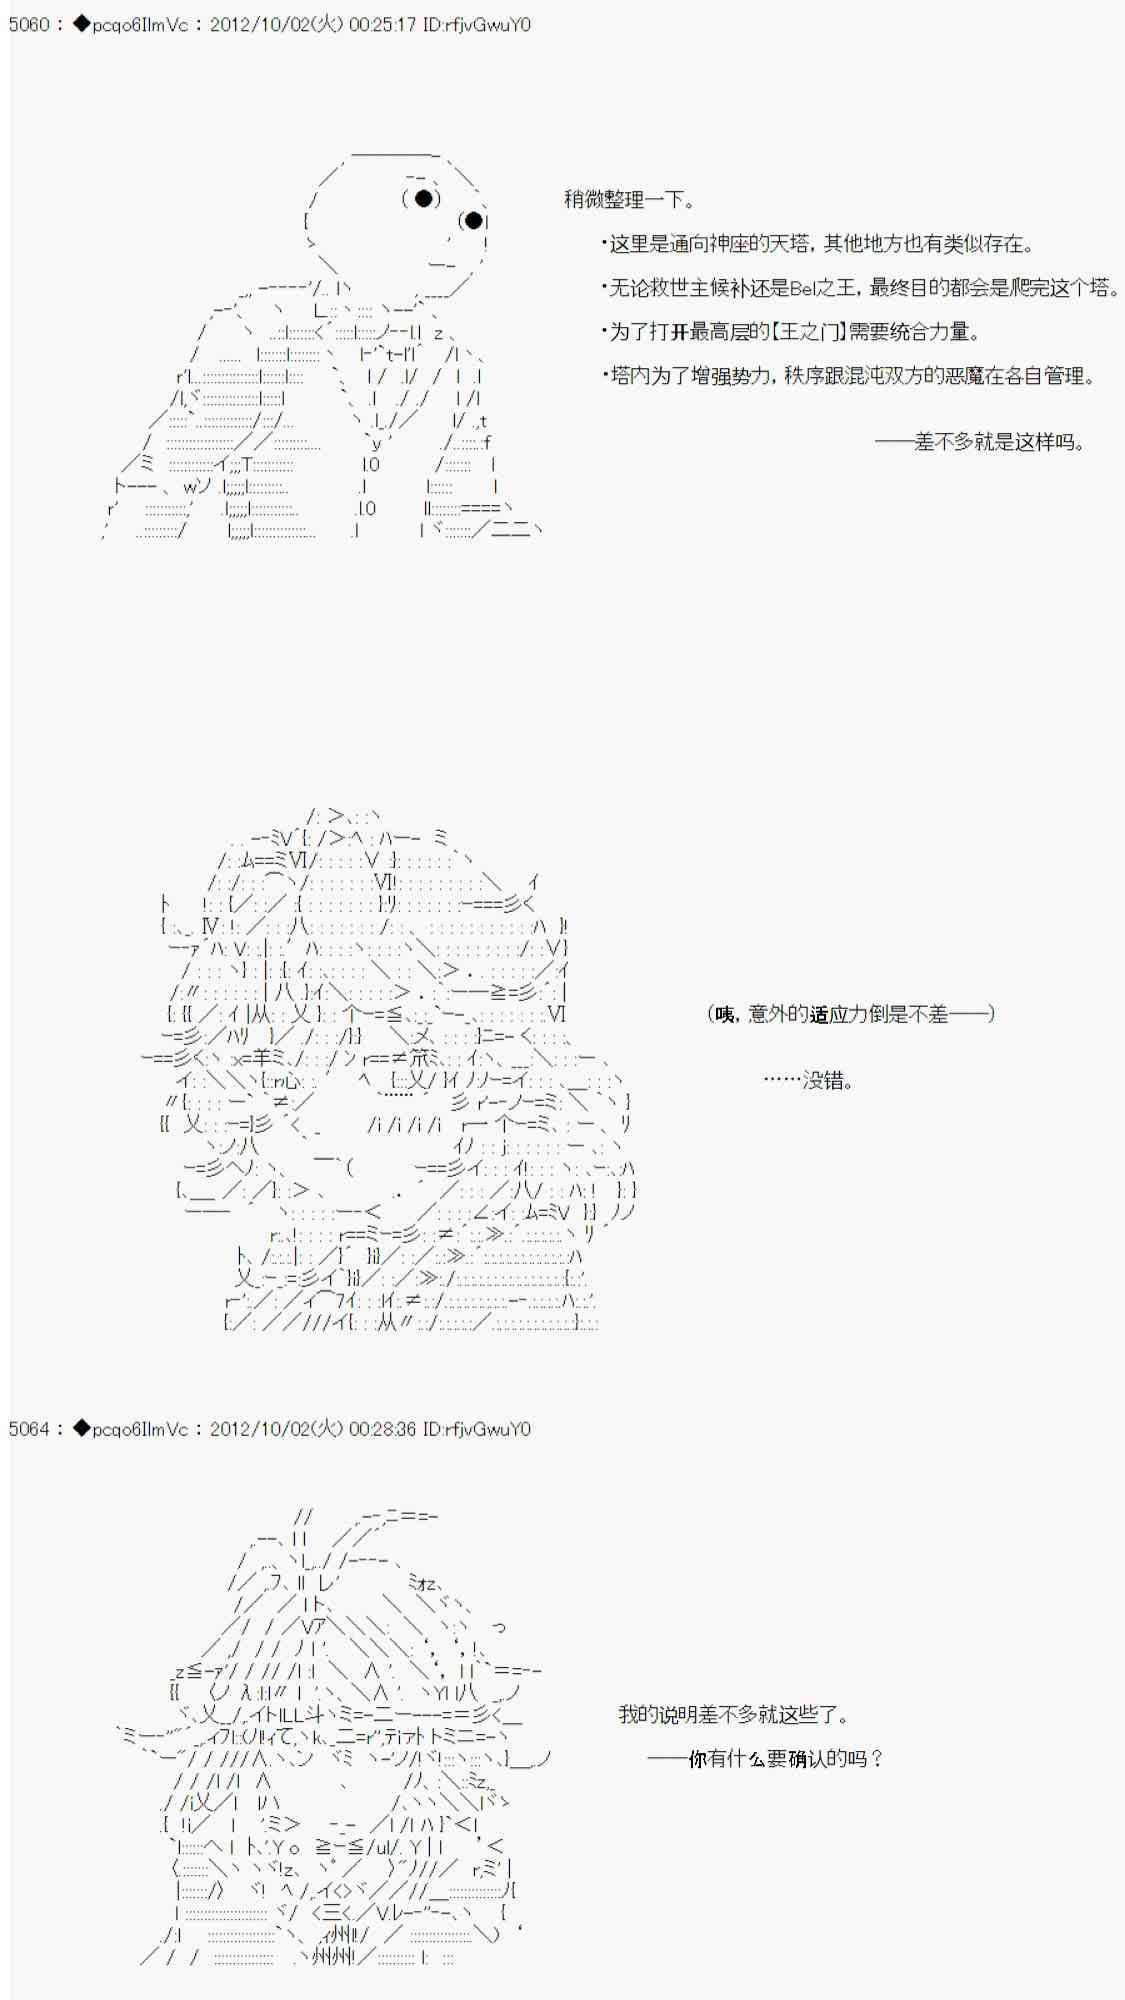 5060 : ◆pcqo6IlmVc : 2012/10/02(火) 00:25:17 ID:rfjvGwuY0
稍微整理一下。
・这里是通向神座的天塔, 其他地方也有类似存在。
・无论救世主候补还是Bel之王, 最终目的都会是爬完这个塔。
・为了打开最高层的【王之门】需要统合力量。
・塔内为了增强势力, 秩序跟混沌双方的恶魔在各自管理。
——差不多就是这样吗。
(咦, 意外的适应力倒是不差——)
……没错。
5064 : ◆pcqo6IlmVc : 2012/10/02(火) 00:28:36 ID:rfjvGwuY0
我的说明差不多就这些了。
——你有什么要确认的吗？